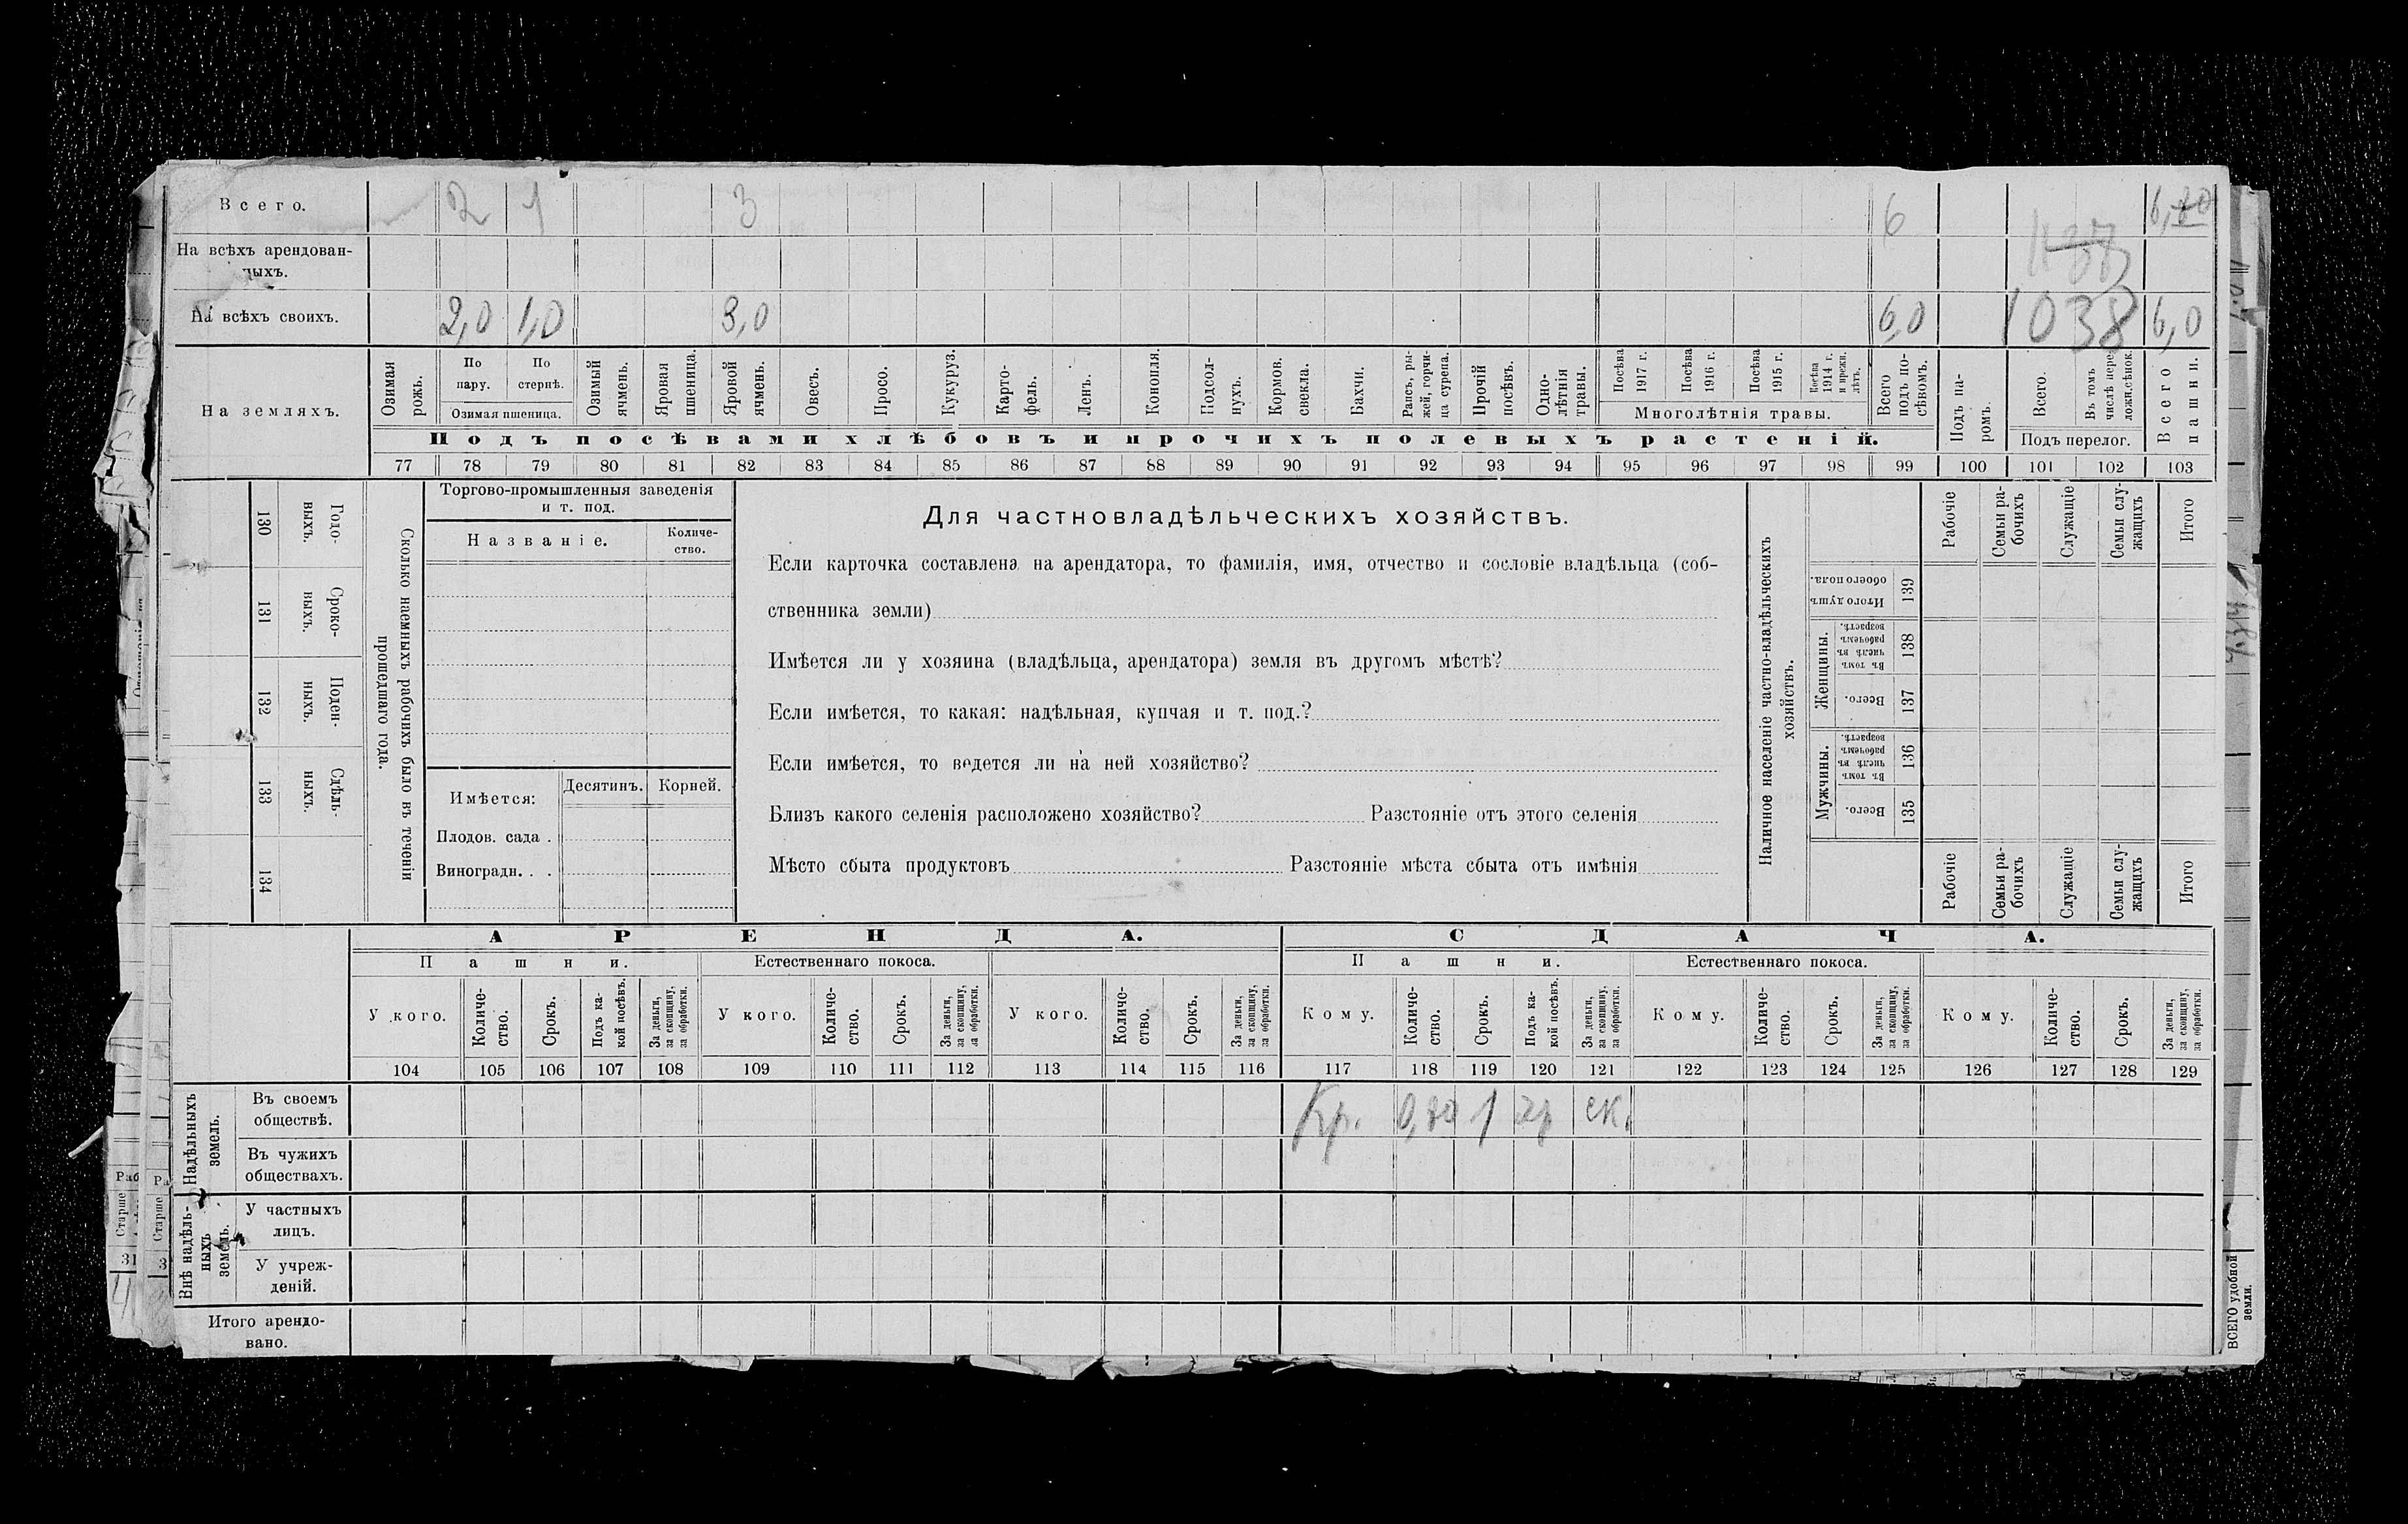 Всего. 2 1 3 6 6,80
На всѣхъ арендован-
ныхъ.
На всѣхъ своихъ. 2,0 1,0 3,0 6,0 1038 6,0
На земляхъ.
Озимая рожь.
По пару.
По стернѣ.
Озимая пшеница.
Озимый ячмень.
Яровая пшеница.
Яровой ячмень.
Овесъ.
Просо.
Кукуруз.
Карто-
фель.
Ленъ.
Конопля.
Подсол-
нухъ.
Кормов. свекла.
Бахчи.
Рапсъ, ры-
жей, горчи-
ца сурепа.
Прочій посѣвъ.
Одно-
лѣтнія травы.
Посѣва 1917 г.
Посѣва 1916 г.
Посѣва 1915 г.
Посѣва 1914 г. и прежн. лѣтъ.
Многолѣтнія травы.
Всего подъ по-
сѣвомъ.
Подъ па-
ромъ.
Всего.
Въ томъ числѣ пере-
ложн. сѣнок.
Подъ перелог.
Всего пашни.
Подъ посѣвами хлѣбовъ и прочихъ полевыхъ растеній.
77 78 79 80 81 82 83 84 85 86 87 88 89 90 91 92 93 94 95 96 97 98 99 100 101 102 103
130 Годо-
выхъ.
131 Сроко-
ныхъ.
132 Поден-
ныхъ.
133 Сдѣль-
ныхъ.
134
Сколько наемныхъ рабочихъ было въ теченіи
прошедшаго года.
Торгово-промышленныя заведенія
и т. под.
Названіе.
Количе-
ство.
Имѣется:
Десятинъ. Корней.
Плодов. сада .
Виноградн. . .
Для частновладѣльческихъ хозяйствъ.
Если карточка составлена на арендатора, то фамилія, имя, отчество и сословіе владѣльца (соб-
ственника земли)
Имѣется ли у хозяина (владѣльца, арендатора) земля въ другомъ мѣстѣ?
Если имѣется, то какая: надѣльная, купчая и т. под.?
Если имѣется, то ведется ли на ней хозяйство?
Близъ какого селенія расположено хозяйство? Разстояніе отъ этого селенія
Мѣсто сбыта продуктовъ Разстояніе мѣста сбыта отъ имѣнія
Наличное населеніе частно-владѣльческихъ
хозяйствъ.
Итого душъ обоего пола. 139
Женщины.
Въ томъ числѣ въ рабочемъ возрастѣ. 138
Всего. 137
Мужчины.
Въ томъ числѣ въ рабочемъ возрастѣ. 136
Всего. 135
Рабочіе
Семьи ра-
бочихъ
Служащіе
Семьи слу-
жащихъ
Итого
Рабочіе
Семьи ра-
бочихъ
Служащіе
Семьи слу-
жащихъ
Итого
АРЕНДА. СДАЧА.
Пашни. Естественнаго покоса. Пашни. Естественнаго покоса.
У кого. Количе-
ство. Срокъ. Подъ ка-
кой посѣвъ. За деньги, за скопщину, за обработки.
У кого. Количе-
ство. Срокъ. За деньги, за скопщину, за обработки.
У кого. Количе-
ство. Срокъ. За деньги, за скопщину, за обработки.
Кому. Количе-
ство. Срокъ. Подъ ка-
кой посѣвъ. За деньги, за скопщину, за обработки.
Кому. Количе-
ство. Срокъ. За деньги, за скопщину, за обработки.
Кому. Количе-
ство. Срокъ. За деньги, за скопщину, за обработки.
104 105 106 107 108 109 110 111 112 113 114 115 116 117 118 119 120 121 122 123 124 125 126 127 128 129
Надѣльныхъ земель.
Въ своемъ
обществѣ. Кр. 0,80 1 ск.
Въ чужихъ
обществахъ.
Внѣ надѣль-
ныхъ земель.
У частныхъ
лицъ.
У учреж-
деній.
Итого арендо-
вано.
Старше
31
Старше
3
ВСЕГО удобной
земли.